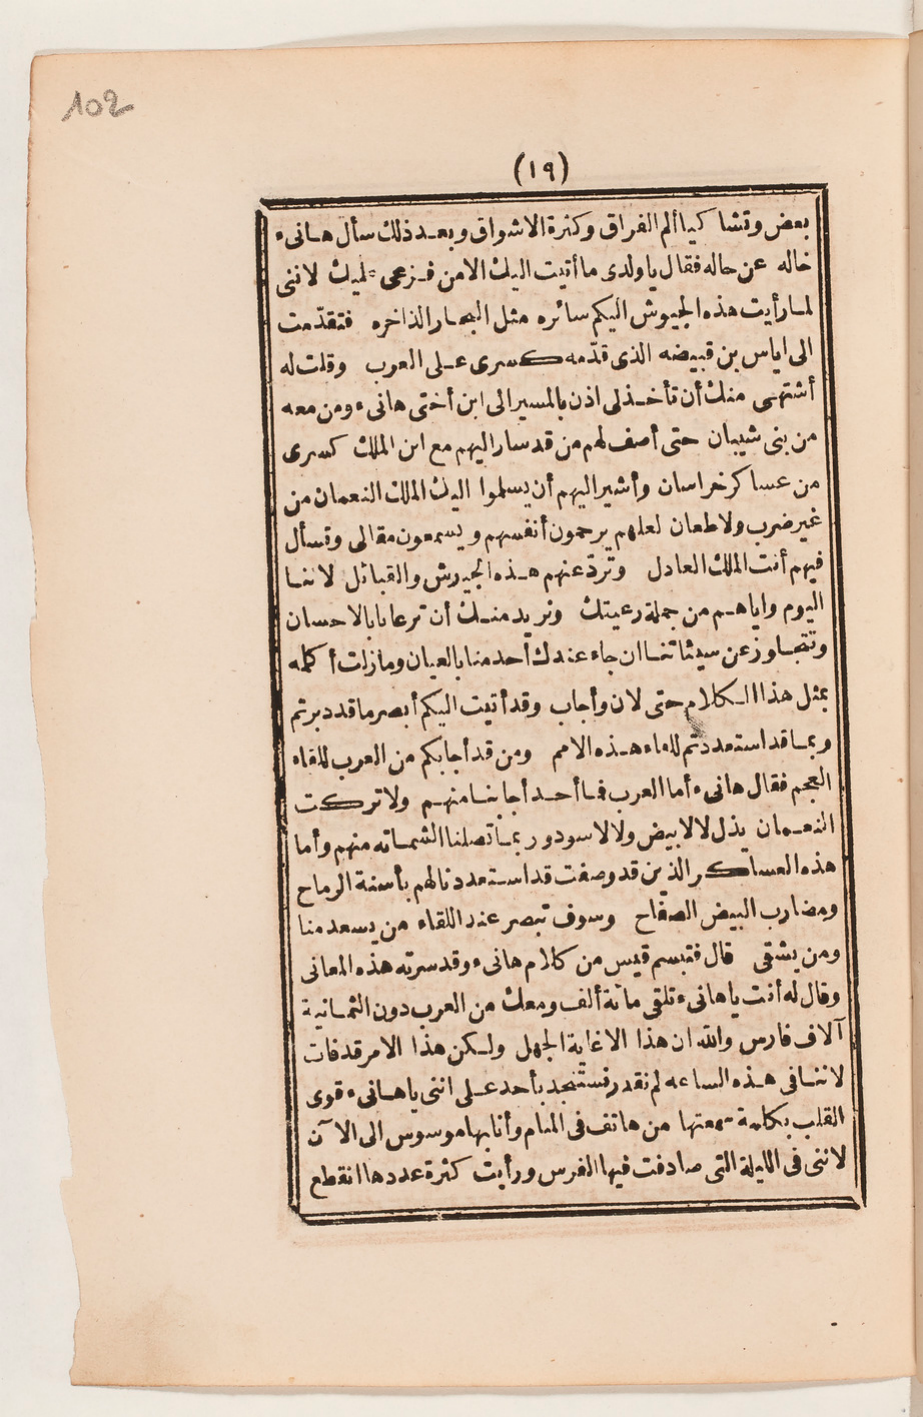 102
(١٩)
بعض وتشاكيا ألم الفراق وكثرة الاشواق وبعد ذلك سأل هانىء
خاله عن حاله فقال يا ولدى ما أتيت اليك الا من فزعى عليك لاننى
لما رأيت هذه الجيوش اليكم سائره مثل البحار الذاخره فتقدّمت
الى اياس بن قبيضه الذى قدّمه كسرى على العرب وقلت له
أشتهى منك أن تأخذ لى اذن بالمسير الى ابن أختى هانىء ومن معه
من بنى شيبان حتى أصف لهم من قد سار اليهم مع ابن الملك كسرى
من عساكر خراسان وأشير اليهم أن يسلموا اليك الملك النعمان من
غير ضرب ولا طعان لعلهم يرحمون أنفسهم ويسمعون مقالى وتسأل
فيهم أنت الملك العادل وتردّ عنهم هذه الجيوش والقبائل لاننا
اليوم واياهم من جملة رعيتك ونريد منك أن ترعانا بالاحسان
وتتجاوز عن سيئاتنا ان جاء عندك أحد منا بالعيان وما زلت أكلمه
بمثل هذا الكلام حتى لان وأجاب وقد أتيت اليكم أبصر ما قد دبرتم
وبما قد استعددتم للقاء هذه الامم ومن قد أجابكم من العرب للقاء
العجم فقال هانىء أما العرب فما أحد أجابنا منهم ولا تركت
النعمان يذل لا لابيض ولا لاسود وربما تصلنا الشماته منهم وأما
هذه العساكر الذين قد وصفت قد استعددنا لهم بأسنة الرماح
ومضارب البيض الصفاح وسوف تبصر عند اللقاء من يسعد منا
ومن يشقى قال فتبسم قيس من كلام هانىء وقد سرته هذه المعانى
وقال له أنت يا هانىء تلقى مائة ألف ومعك من العرب دون الثمانية
آلاف فارس والله ان هذا الا غاية الجهل ولكن هذا الامر قد فات
لاننا فى هذه الساعه لم نقدر نستنجد بأحد على اننى يا هانىء قوى
القلب بكلمة سمعتها من هاتف فى المنام وأنا بها موسوس الى الآن
لاننى فى الليلة التى صادفت فيها الفرس ورأيت كثرة عددها انقطع